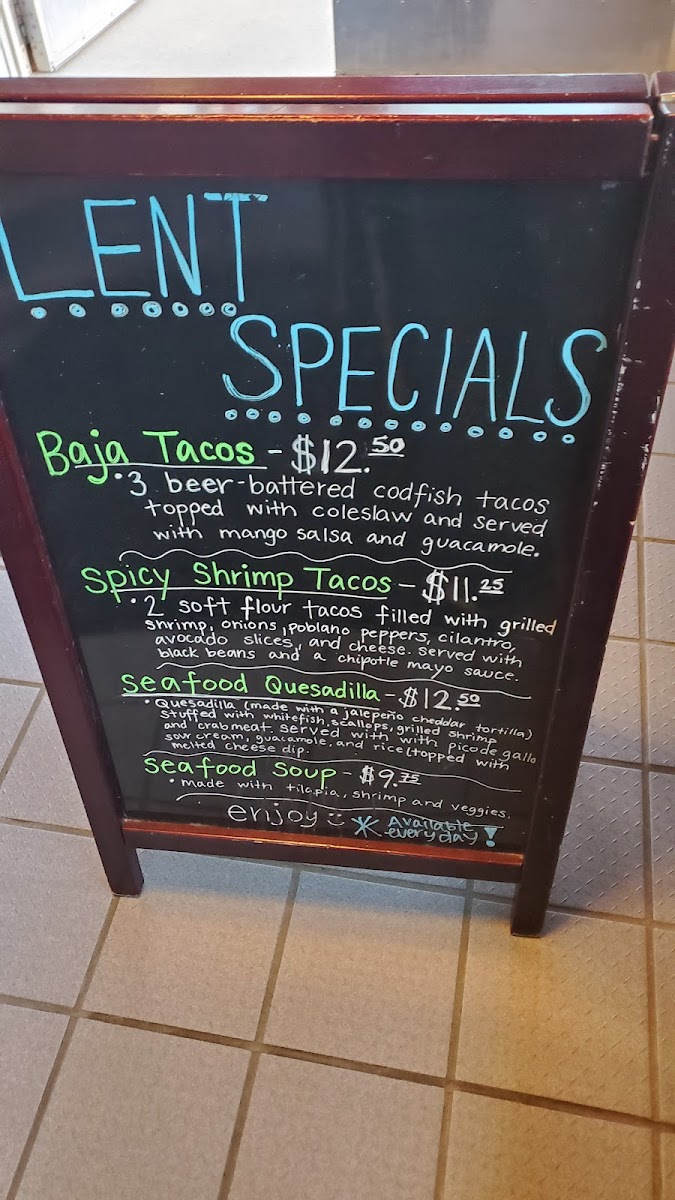 LENT
SPECIALS
Baja Tacos - $12.50
• 3 beer-battered codfish tacos
topped with coleslaw and served
with mango salsa and guacamole.
Spicy Shrimp Tacos - $11.25
• 2 soft flour tacos filled with grilled
shrimp, onions, poblano peppers, cilantro,
avocado slices, and cheese. served with
black beans and a chipotle mayo sauce.
seafood Quesadilla - $12.50
• Quesadilla (made with a jalepeño cheddar tortilla)
stuffed with whitefish, scallops, grilled shrimp
and crabmeat served with with pico de gallo
sour cream, guacamole, and rice (topped with
melted cheese dip.
seafood Soup - $9.75
• made with tilapia, shrimp and veggies.
enjoy :) * Available
everyday!